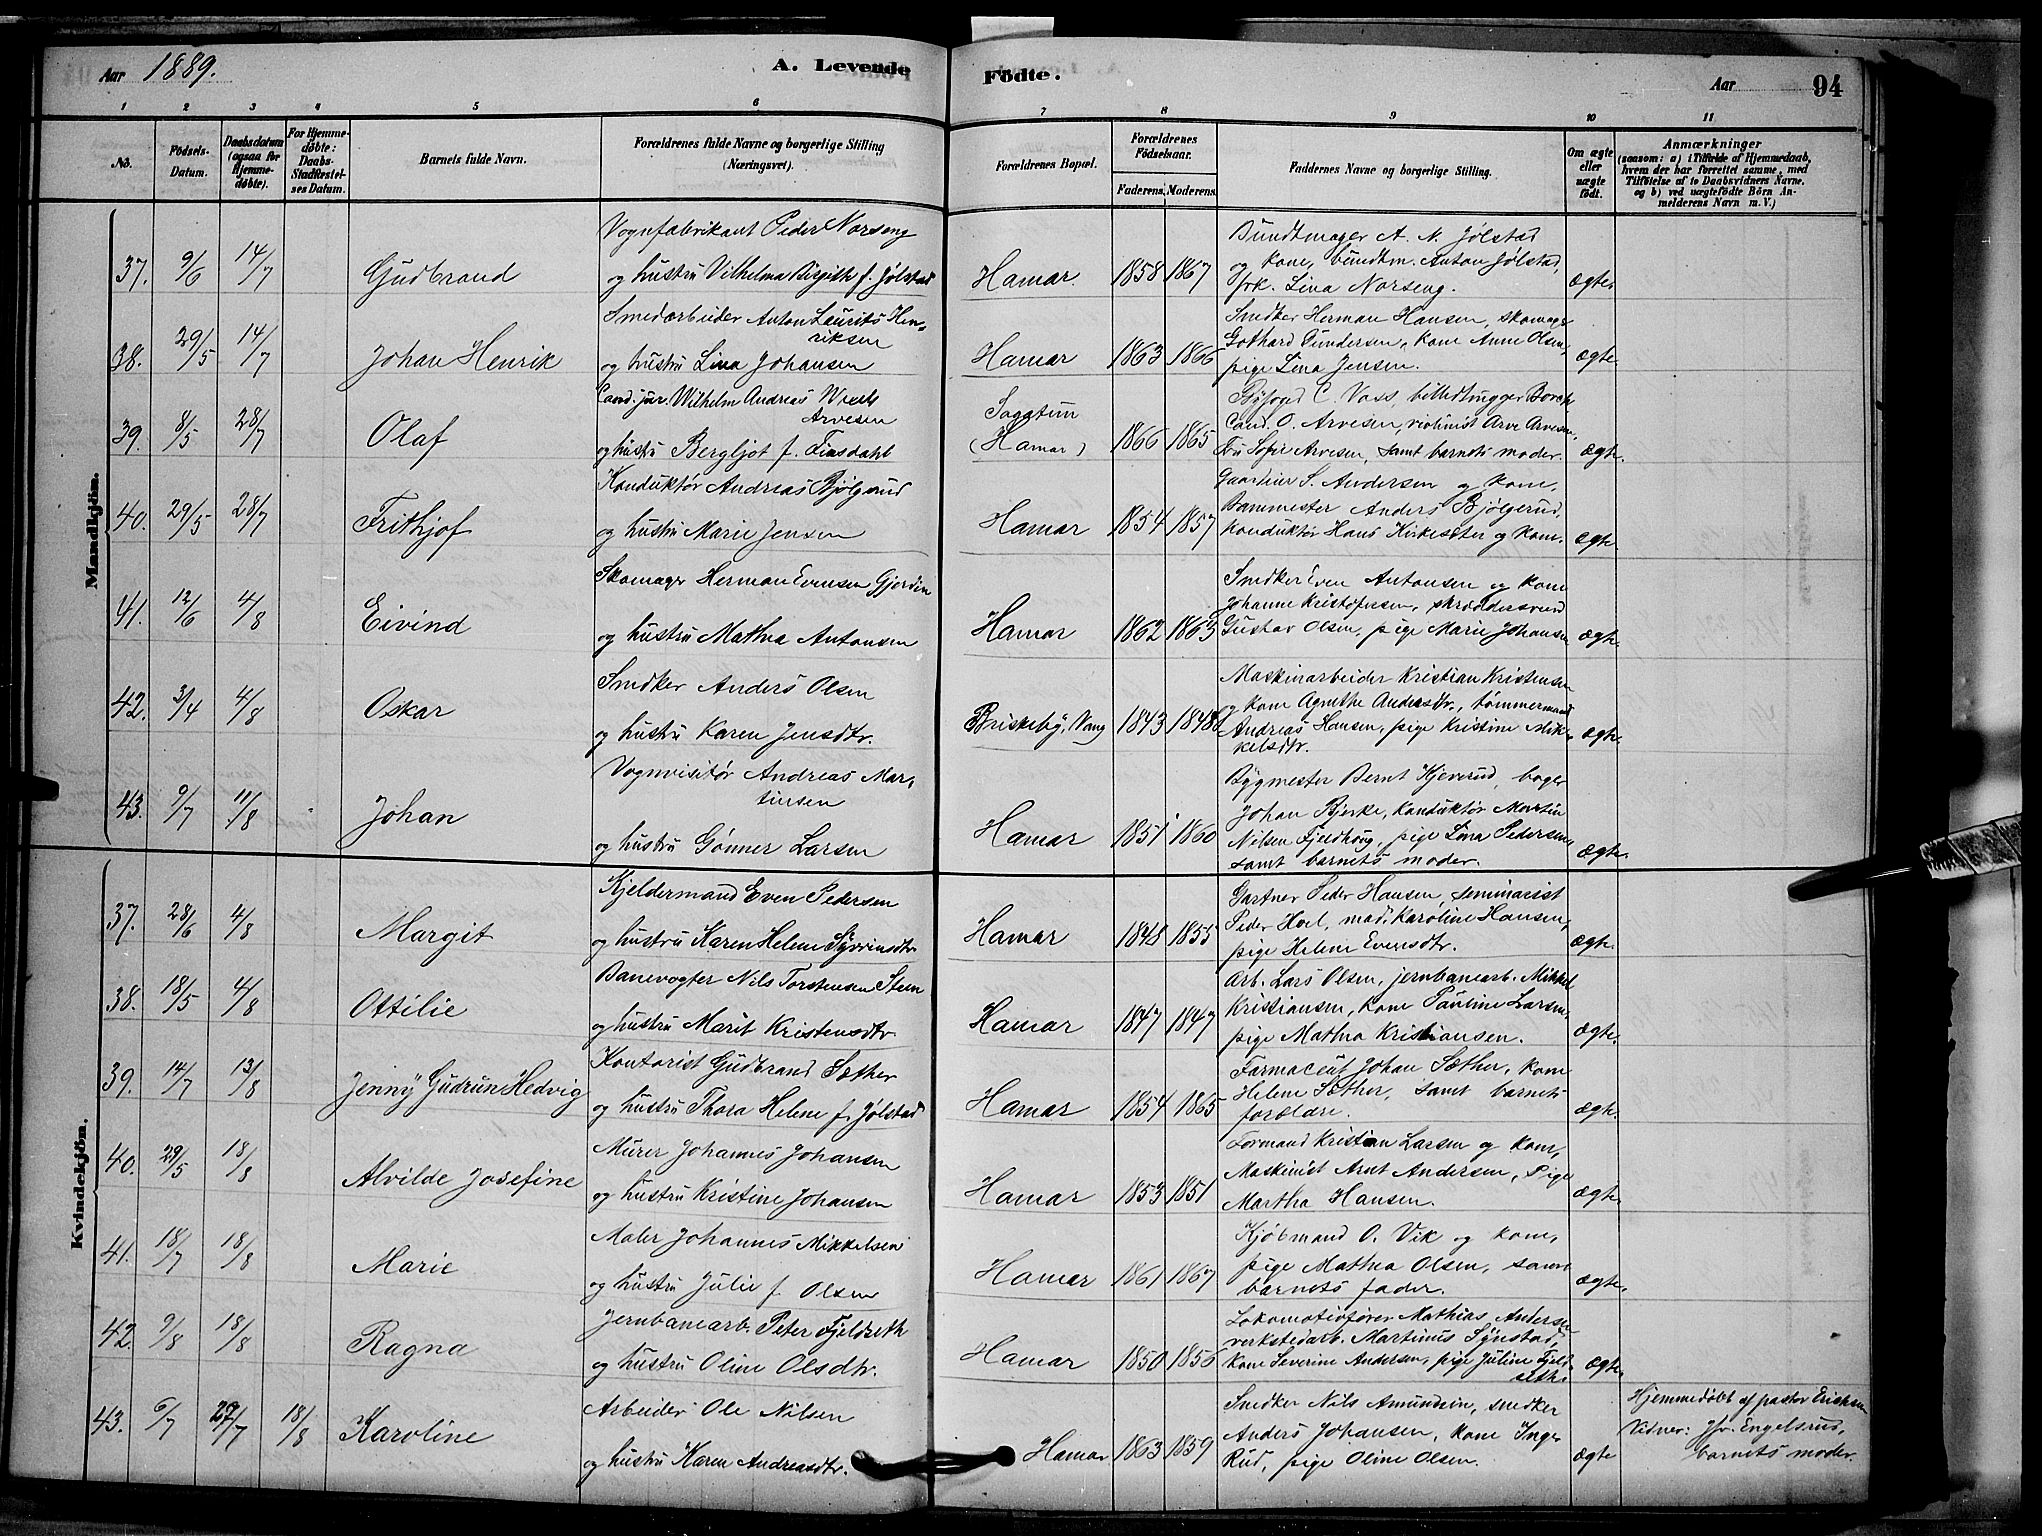 Aar 1889.
A. Levende Födte.
Aar 94
1 2 3 4 5 6 7 8 9 10 11
No.
Födsels-Datum.
Daabsdatum (ogsaa for Hjemme-døbte).
For Hjemme-døbte: Daabs-Stadfæstel-ses Datum.
Barnets fulde Navn.
Forældrenes fulde Navne og borgerlige Stilling
(Næringsvei).
Forældrenes Bopæl.
Forældrenes Födselsaar.
Faderens. Moderens.
Faddernes Navne og borgerlige Stilling.
Om ægte eller uægte födt.
Anmærkninger
(saasom: a) i Tilfælde af Hjemmedaab, hvem der har forrettet samme, med Tilföielse af to Daabsvidners Navne, og b) ved uægtefödte Börn Anmelderens Navn m. V.)
Mandkjön.
37. 9/6 14/7 Gudbrand
Vognfabrikant Peder Norseng
og hustru Vilhelma Birgith f. Jølstad
Hamar. 1858 1867
Bundtmager A. N. Jølstad
og kone, bundtm. Anton Jølstad,
frk. Lina Norseng.
ægte
38. 29/5 14/7 Johan Henrik
Smedarbeider Anton Laurits Hen-
riksen
og hustru Lina Johansen
Hamar 1863 1866
Snedker Herman Hansen, skomager
Gothard Gundersen, kone Anne Olsen,
pige Lina Jensen.
ægte
39. 8/5 28/7 Olaf
Cand. jur. Wilhelm Andreas Wexels
Arvesen
og hustru Bergljot f. Finsdahl
Sagatun
(Hamar) 1866 1865
Byfoged C. Voss, billedhugger Borch
Cand. O. Arvesen, violinist Arve Arvesen,
Fru Sofie Arvesen, samt barnets moder.
ægte.
40. 29/5 28/7 Frithjof
Konduktør Andreas Bjølgerud
og hustru Marie Jensen
Hamar 1854 1857
S. Andersen og kone,
Banmester Anders Bjølgerud,
Konduktør Hans Kirkesæter og kone.
ægte.
41. 12/6 4/8 Eivind
Skomager Herman Evensen Gjordin
og hustru Mathea Antonsen
Hamar 1862 1863
Snedker Even Antonsen og kone
Johanne Kristofersen, skræddersvend
Gustav Olsen, pige Marie Johansen
ægte.
42. 3/4 4/8 Oskar
Snedker Anders Olsen
og hustru Karen Jensdtr.
Briskeby, Vang 1843 1848
Maskinarbeider Kristian Kristensen
og kone Agnethe Andersdtr., tømmermand
Andreas Hansen, pige Kristine Mik-
kelsdtr.
ægte.
43. 9/7 11/8 Johan
Vognvisitør Andreas Mar-
tinsen
og hustru Gønner Larsen
Hamar 1851 1860
Bygmester Bernt Hjeverud, bager
Johan Bjerke, Konduktør Martin
Nilsen Fjeldhoug, pige Lina Pedersen,
samt barnets moder.
ægte.
Kvindekjön.
37. 28/6 4/8 Margit
Kjeldermand Even Pedersen
og hustru Karen Helene Syverinsdtr.
Hamar 1848 1855
Gartner Peder Hansen, seminarist
Peder Hoel, mad. Karoline Hansen,
pige Helene Evensdtr.
ægte.
38. 18/5 4/8 Ottilie
Banevogter Nils Torstensen Steen
og hustru Marit Kristensdtr.
Hamar 1847 1847
Arb. Lars Olsen, jernbanearb. Mikkel
Kristiansen, kone Pauline Larsen,
pige Mathea Kristiansen.
ægte.
39. 14/7 13/8 Jenny Gudrun Hedvig
Kontorist Gudbrand Sæther
og hustru Thora Helene f. Jølstad
Hamar 1854 1865
Farmaceut Johan Sæther, kone
Helene Sæther, samt barnets
forældre.
ægte.
40. 29/5 18/8 Alvilde Josefine
Murer Johannes Johansen
og hustru Kristine Johansen
Hamar 1853 1851
Formand Kristian Larsen og kone,
Maskinist Arnt Andersen, Pige
Martha Hansen.
ægte.
41. 18/7 18/8 Marie
Maler Johannes Mikkelsen
og hustru Julie f. Olsen
Hamar 1861 1867
Kjøbmand O. Vik og kone,
pige Mathea Olsen, samt
barnets fader.
ægte.
42. 9/8 18/8 Ragna
Jernbanearb. Peter Fjeldseth
og hustru Oline Olsdtr.
Hamar 1850 1856
Lokomotivfører Mathias Andersen
verkstedarb. Martinus Synstad,
Kone Severine Andersen, pige Juline Fjeld-
seth.
ægte.
43. 6/7 27/7 18/8 Karoline
Arbeider Ole Nilsen
og hustru Karen Andreasdtr.
Hamar 1863 1859
Snedker Nils Amundsen, snedker
Anders Johansen, kone Inger
Rud, pige Oline Olsen.
ægte
Hjemmedøbt af pastor Eriksen
Vidner: Jfr. Engelsrud,
barnets moder.